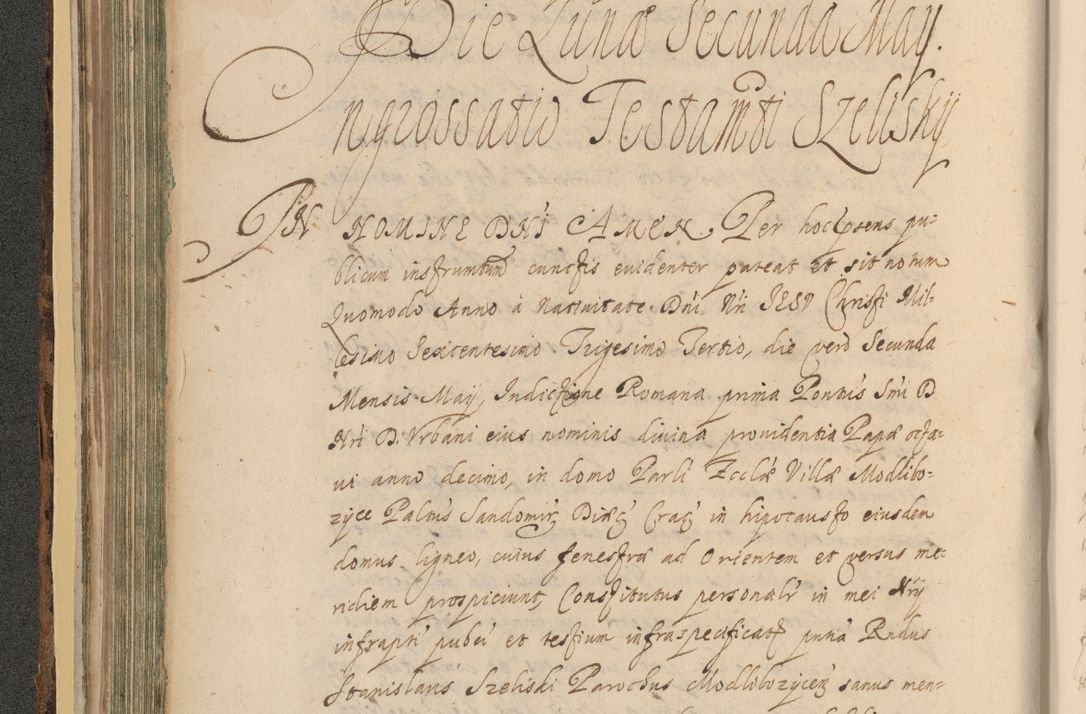 Die Lunæ Secunda May.
Ingrossatio Testamti Szelisky
IN NOMINE DNI AMEN. Per hoc psens pu-
blicum instrumtum cunctis euidenter pateat et sit notum
Quomodo Anno à Natiuitate Dni Nri IESV Christi Mil-
lesimo Sexcentesimo Trigesimo Tertio, die verò Secunda
Mensis May, Indictione Romana prima Pontus Smi D
Nri D. Vrbani eius nominis diuina prouidentia Papæ octa-
ui anno decimo, in domo Parli Ecclæ Villæ Modlibo-
zyce Palnus Sandomir Diæc Crac in hipocausto eiusdem
domus ligneo, cuius fenestræ ad Orientem et versus me-
ridiem prospiciunt, Constitutus personalr in mei Nry
infrapti pubci et testium infraspecificat pntia Rndus
Stanislaus Szeliski Parochus Modlibozycen sanus men-